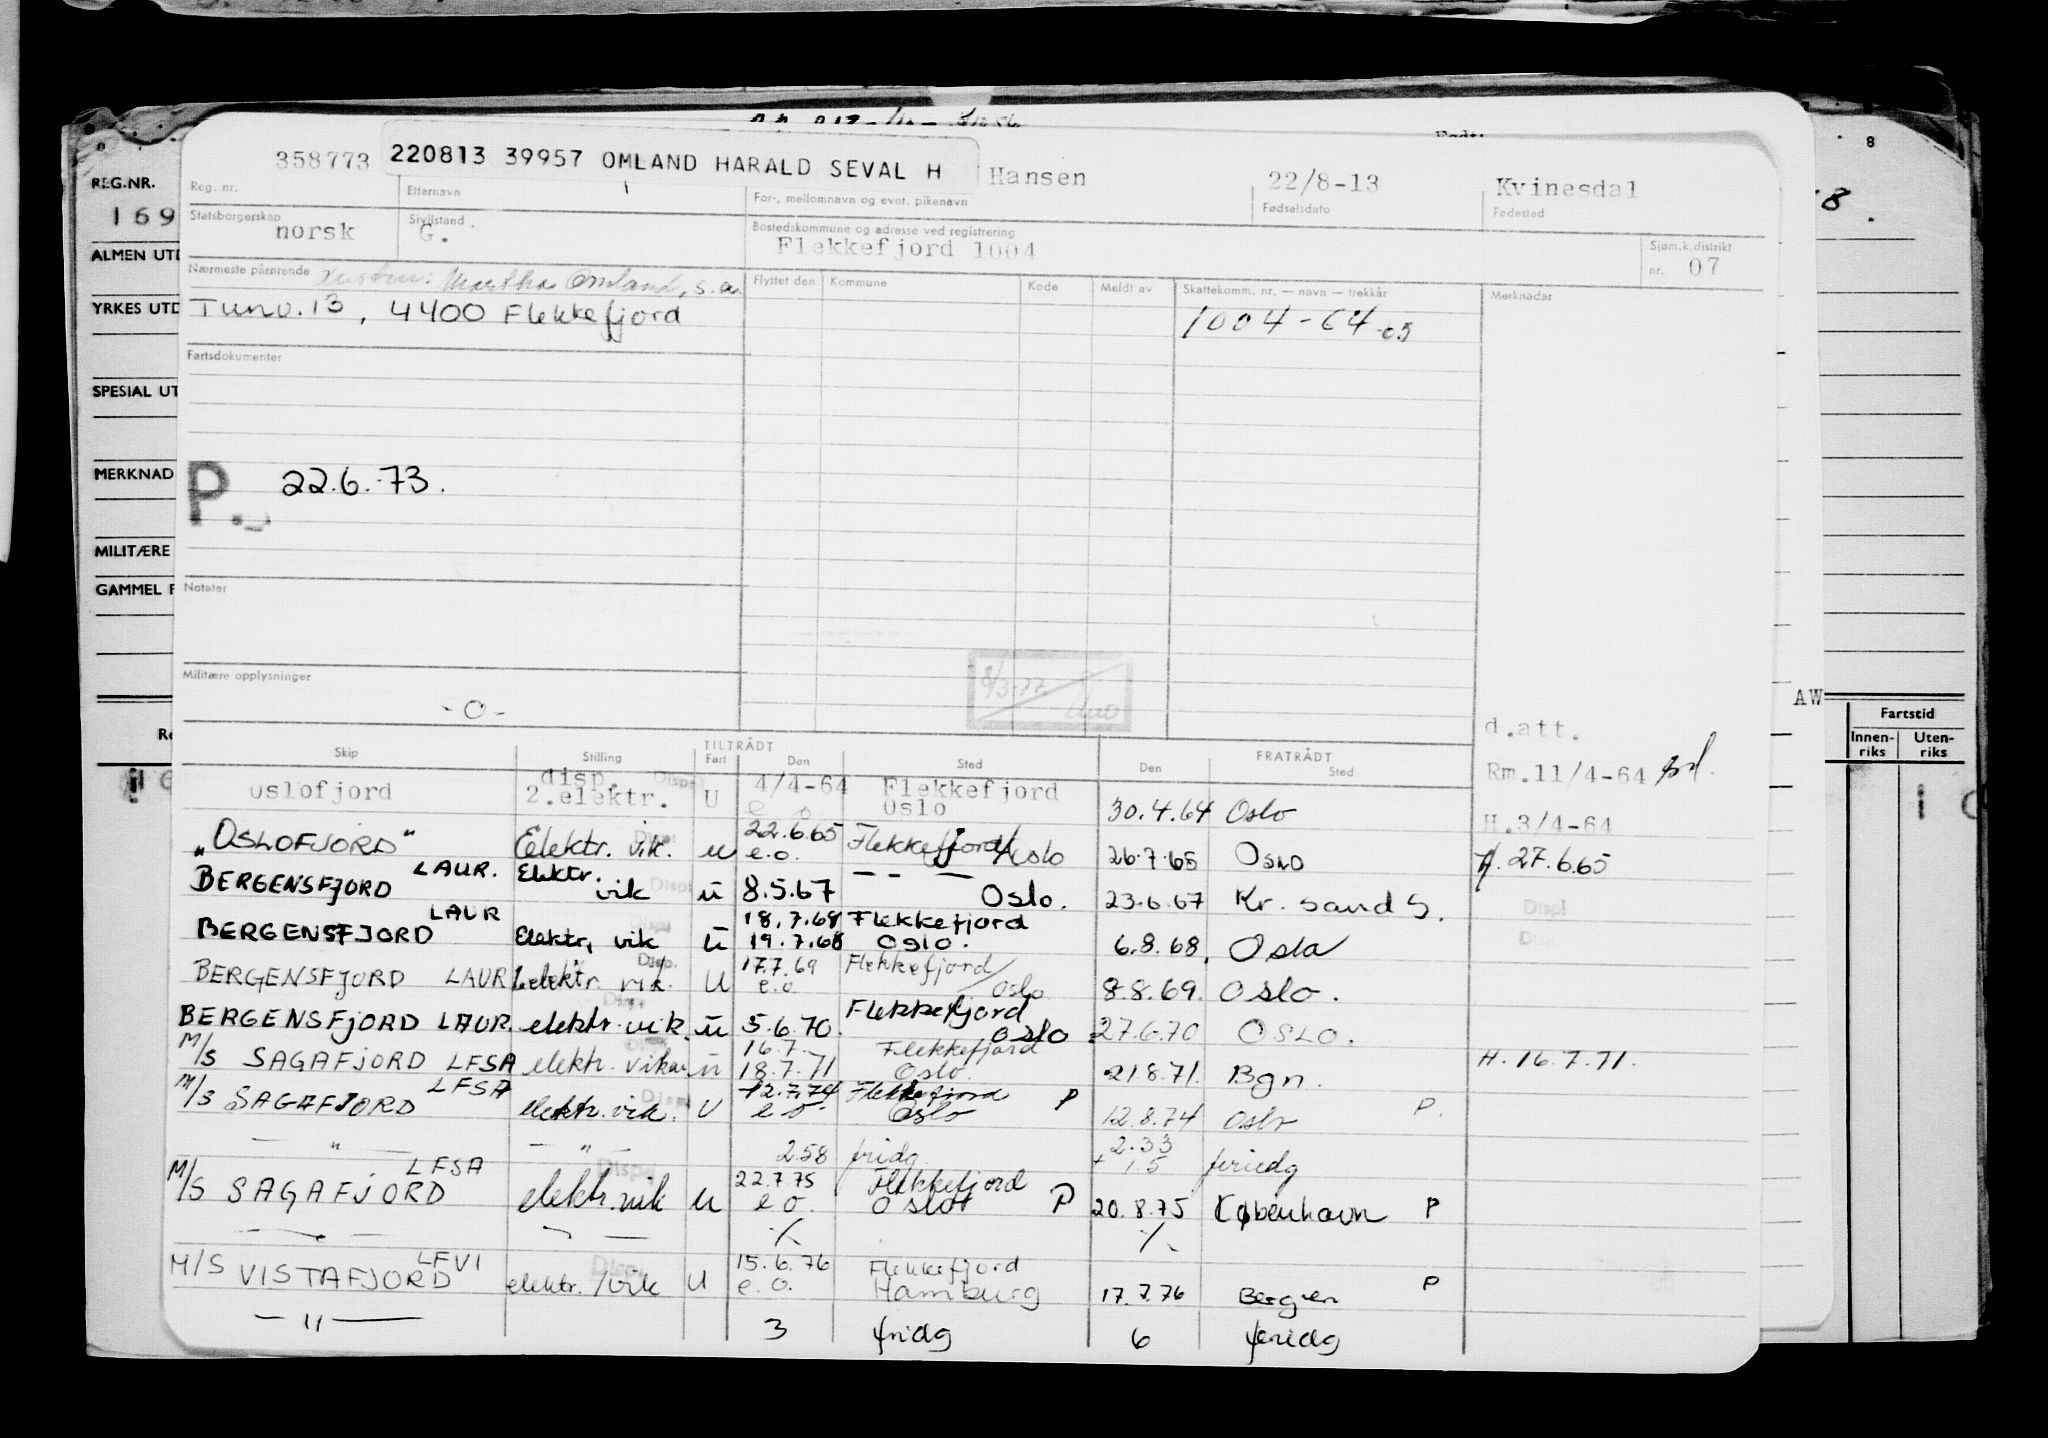 358773 220813 39957 OMLAND HARALD SEVAL H Hansen 22/8-13 Kvinesdal
Reg. nr. Etternavn For-, mellomnavn og evnt. pikenavn Fødselsdato Fødested
Statsborgerskap norsk Sivilstand G. Bostedskommune og adresse ved registrering Flekkefjord 1004 Sjøm.k.distrikt nr. 07
Nærmeste pårørende Hustru: Martha Omland, s.a. Flyttet den Kommune Kode Meldt av Skattekomm. nr. — navn — trekkår Merknader
Tunv. 13, 4400 Flekkefjord 1004-64-05
Fartsdokumenter
P. 22.6.-73.
Notater
Militære opplysninger
-0-
8/3-77
d.att.
Rm.11/4-64
H.3/4-64
TILTRÅDT FRATRÅDT
Skip Stilling Fart Den Sted Den Sted
oslofjord disp. 2.elektr. U 4/4-64 e o Flekkefjord Oslo 30.4.64 Oslo
"OSLOFJORD" Elektr. vik. u 22.6.65 e.o. Flekkefjord/Oslo 26.7.65 Oslo H. 27.6.65
BERGENSFJORD LAUR. Elektr. vik u 8.5.67 — — — Oslo. 23.6.67 Kr. sand S.
BERGENSFJORD LAUR Elektr, vik u 18.7.68 19.7.68 Flekkefjord Oslo. 6.8.68, Oslo
BERGENSFJORD LAUR elektr. vik. U 17.7.69 e.o Flekkefjord/Oslo 8.8.69. Oslo.
BERGENSFJORD LAUR elektr. vik. u 5.6.70. Flekkefjord Oslo 27.6.70 OSLO.
M/S SAGAFJORD LFSA elektr. vikar u 16.7. 18.7.71 Flekkefjord Oslo. 21.8.71. Bgn. H. 16.7.71.
M/S SAGAFJORD LFSA elektr. vik. U 12.7.74 e o. Flekkefjord Oslo P 12.8.74 Oslo P.
— " — — " — 2.58 fridg. 2.33 + 1.5 feriedg
M/S SAGAFJORD LFSA elektr. vik u 22.7.75 e o. Flekkefjord Oslo P 20.8.75 København P
— " — ٪ ٪
M/S VISTAFJORD LFVI elektr./vik U 15.6.76 e.o. Flekkefjord Hamburg 17.7.76 Bergen P
— " — 3 fridg 6 feridg
REG.NR.
169
ALMEN UTD
YRKES UTD
SPESIAL UT
MERKNAD
MILITÆRE
GAMMEL F
8
AW
Fartstid
Innenriks Utenriks